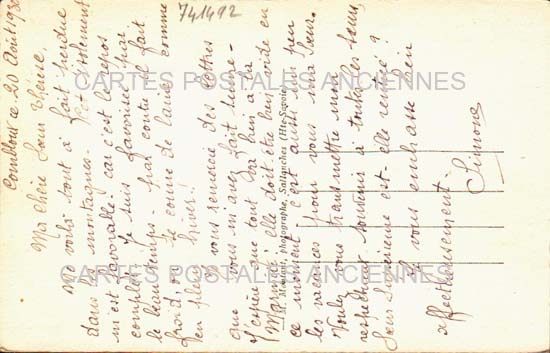 741492
Combloux ce 20 Août 1930
Ma chère Sœur Vienne,
me voilà tout à fait perdue
dans les montagnes. Cet isolement
m'est favorable car c'est le repos
complet. Je suis favorisée par
le beau temps. Par contre il fait
froid, on se couvre de laine comme
en plein hiver!!
Je vous remercie des lettres
que vous m'avez fait suivre.
J'espère que tout va bien à la
Maison; elle doit être bien vide en
ce moment. C'est aussi un peu
les vacances pour vous ma Sœur.
Voulez-vous transmettre mon
respectueux souvenir à toutes les Sœurs
Sœur Supérieure est-elle rentrée?
Je vous embrasse bien
affectueusement.
Simone
photographe, Sallanches (Hte-Savoie)
CARTES POSTALES ANCIENNES
CARTES POSTALES ANCIENNES